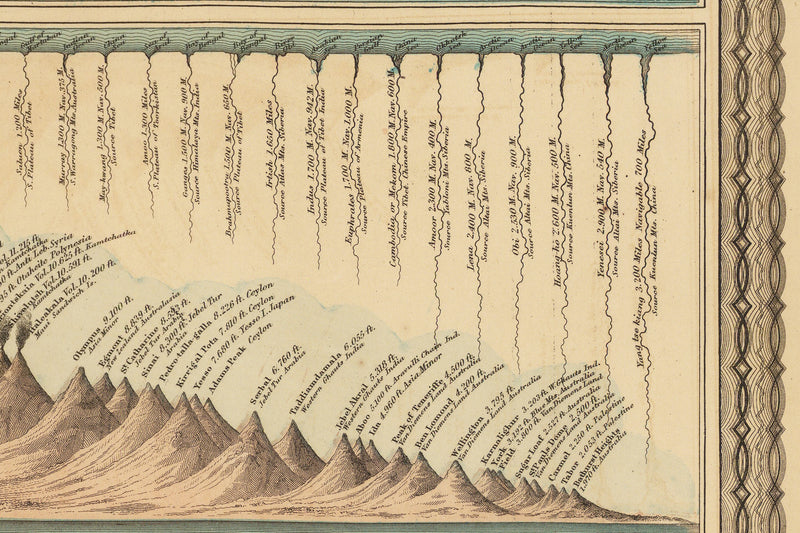 Gulf of
Martaban
Indian
Ocean
China
Sea
Sea of
Aral
Bay of
Bengal
Bay of
Bengal
Arabian
Sea
Persian
Gulf
China
Sea
Okhotsk
Sea
Arctic
Ocean
Arctic
Ocean
Yellow
Sea
Arctic
Ocean
Yellow
Sea
Saluen 1,200 Miles
S. Plateau of Tibet
Murray 1,300 M. Nav. 375 M.
S. Warragong Mts. Australia
May-kuang 1,300 M. Nav. 500 M.
Source Tibet
Amoo 1,300 Miles
S. Plateau of Toorkistan
Ganges 1,500 M. Nav. 900 M.
Source Himalaya Mts. India
Brahmapootry 1,500 M. Nav. 650 M.
Source Plateau of Tibet
Irtish 1,650 Miles
Source Altai Mts. Siberia
Indus 1,700 M. Nav. 942 M.
Source Plateau of Tibet India
Euphrates 1,700 M. Nav. 1,000 M.
Source Plateau of Armenia
Cambodia or Mekom 1,800 M. Nav. 600 M.
Source Tibet. Chinese Empire
Amoor 2,300 M. Nav. 400 M.
Source Yabloni Mts. Siberia
Lena 2,400 M. Nav. 600 M.
Source Altai Mts. Siberia
Obi 2,530 M. Nav. 900 M.
Source Altai Mts. Siberia
Hoang-ho 2,600 M. Nav. 500 M.
Source Kuenlun Mts. China
Yenesei 2,900 M. Nav. 540 M.
Source Altai Mts. Siberia
Yang tse kiang 3,200 Miles Navigable 700 Miles
Source Kuenlun Mts. China
11,215 ft.
Kamtchatka
Anti Leb. Syria
Otaheite Polynesia
Vol. 10,625 ft. Kamtchatka
Vol. 10,591 ft.
Kamtchatka
Haleakala Vol. 10,200 ft.
Maui Sandwich Is.
Olympus 9,100 ft.
Asia Minor
Egmont 8,839 ft.
New Zealand Australasia
St Catharine 8,593 ft.
Jebel Tur Arabia
Sinai 8,300 ft. Jebel Tur
Arabia
Pedrotalla-galla 8,226 ft. Ceylon
Kirrigal Pota 7,810 ft. Ceylon
Yesso 7,680 ft. Yesso I. Japan
Adams Peak Ceylon
Serbal 6,760 ft.
Jebel Tur Arabia
Taddianidamala 6,055 ft.
Western Ghauts India
Jebel Akral 5,318 ft.
Western Ghauts India
Abo 5,000 ft. Aravulli Chain Ind.
Ida 4,960 ft. Asia Minor
Peak of Teneriffe 4,500 ft.
Van Diemens Land Australia
Ben Lomond 4,200 ft.
Van Diemens Land Australia
Wellington 3,795 ft.
Van Diemens Land. Australia
Karmalighur 3,203 ft. W. Ghauts Ind.
York 3,192 ft. Blue Mts. Australia
Field 3,000 ft. Van Diemens Land
Sugar Loaf 2,527 ft. Australia
St Pauls Dome 2,500 ft.
Van Diemens Land Australia
Carmel 2,250 ft. Palestine
Tabor 2,053 ft. Palestine
Bathurst Heights
1,970 ft. Australia